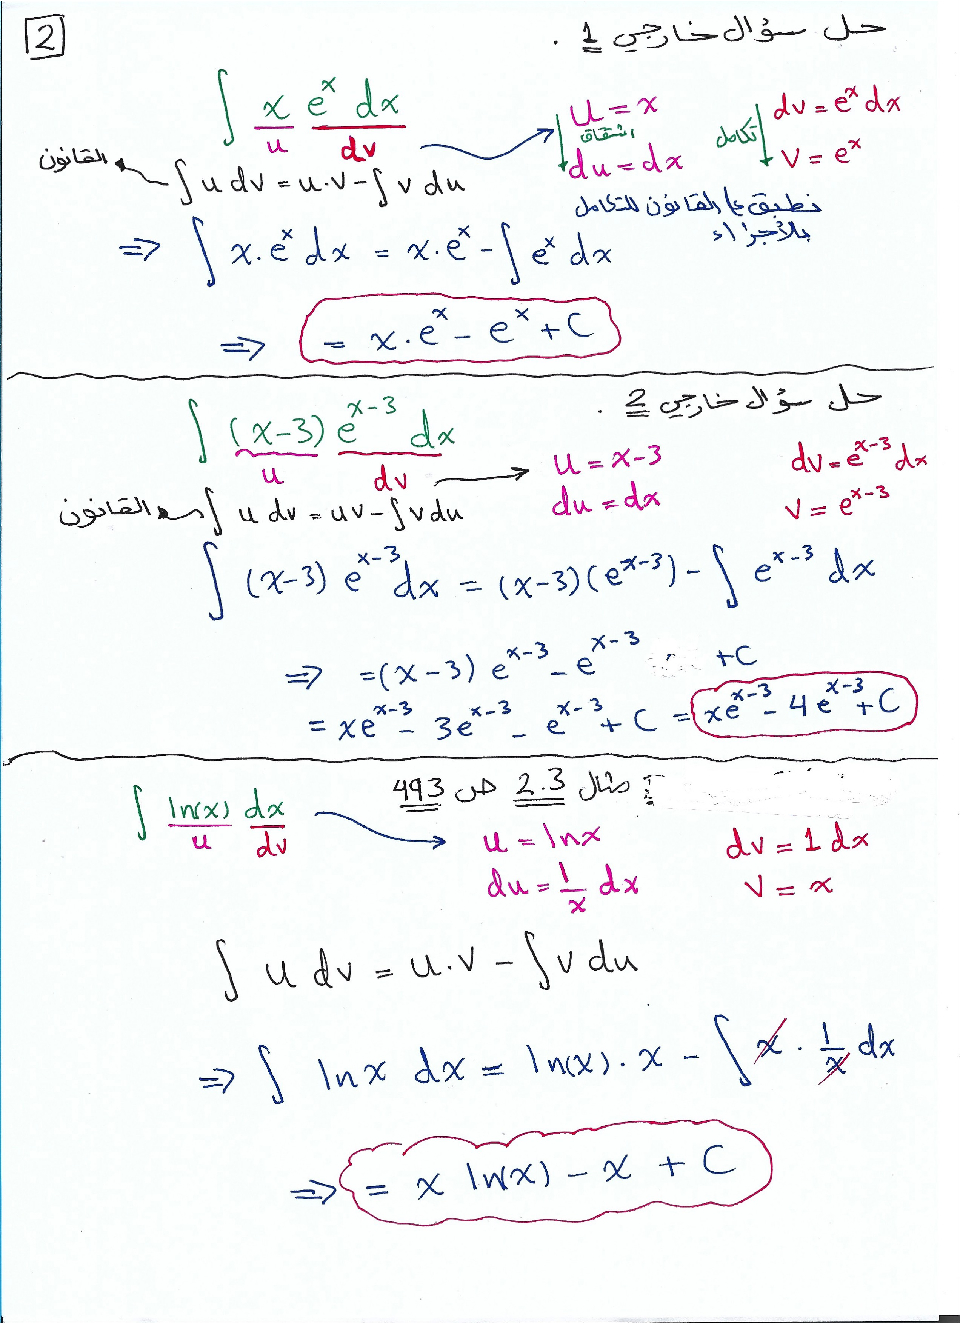 2
حل سؤال خارجي 1 .
∫ x e^x dx
u dv
u = x
اشتقاق
du = dx
dv = e^x dx
تكامل
v = e^x
القانون
∫ u dv = u.v - ∫ v du
نطبق على القانون للتكامل
بالأجزاء
⇒ ∫ x.e^x dx = x.e^x - ∫ e^x dx
⇒ = x.e^x - e^x + C
حل سؤال خارجي 2 .
∫ (x-3) e^{x-3} dx
u dv
u = x-3
du = dx
dv = e^{x-3} dx
v = e^{x-3}
القانون
∫ u dv = uv - ∫ v du
∫ (x-3) e^{x-3} dx = (x-3)(e^{x-3}) - ∫ e^{x-3} dx
⇒ = (x-3) e^{x-3} - e^{x-3} + C
= xe^{x-3} - 3e^{x-3} - e^{x-3} + C = xe^{x-3} - 4e^{x-3} + C
مثال 2.3 ص 493
∫ ln(x) dx
u dv
u = lnx
du = 1/x dx
dv = 1 dx
v = x
∫ u dv = u.v - ∫ v du
⇒ ∫ lnx dx = ln(x).x - ∫ x . 1/x dx
⇒ = x ln(x) - x + C